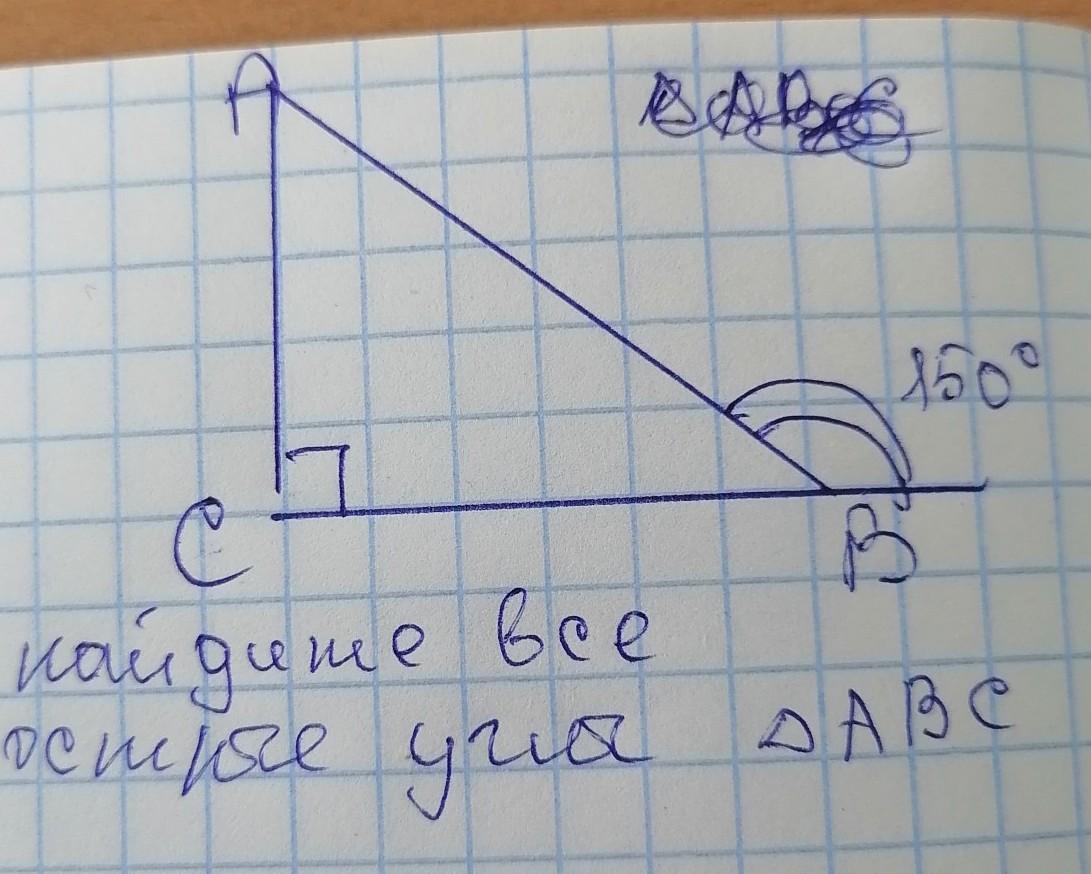 A
150°
C
B
найдите все
острые углы △ABC